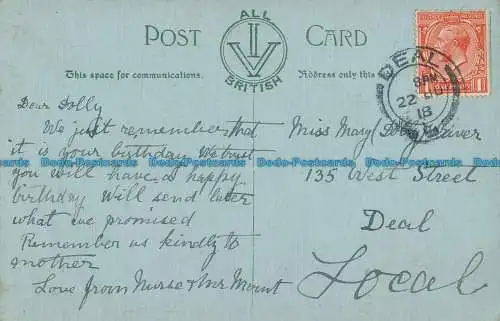 POST CARD
ALL
BRITISH
This space for communications.
Address only this
DEAL
8 PM
22
18
Dear Dolly
We just remember that
it is your birthday We trust
you will have a happy
birthday Will send later
what we promised
Remember us kindly to
mother
Love from Nurse & Mr Mount
Miss Mary
135 West Street
Deal
Local
Dodo-Postcards Dodo-Postcards Dodo-Postcards Dodo-Postcards Dodo-Postcards